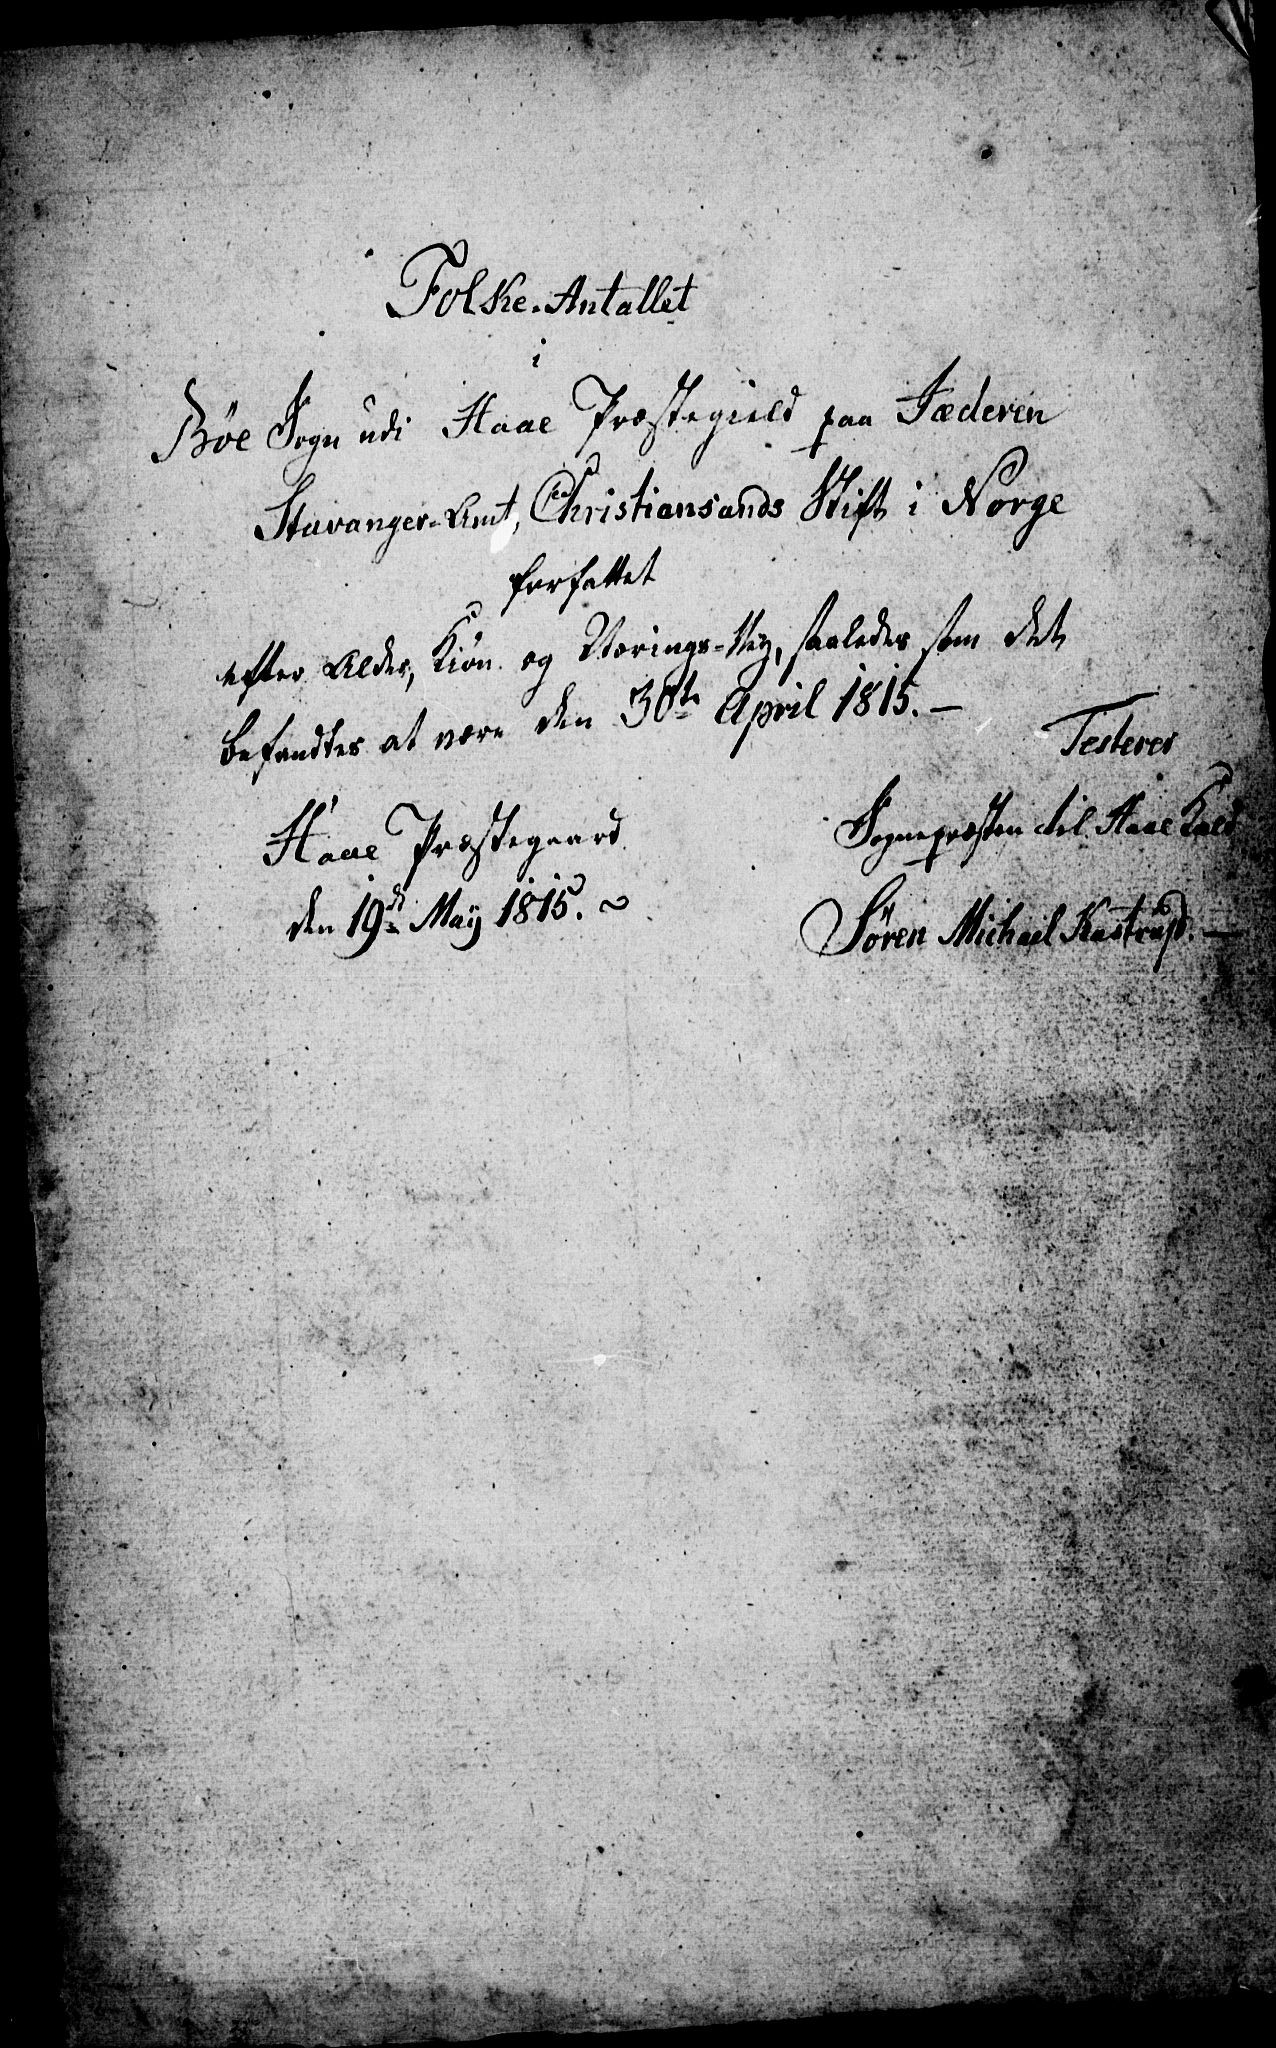 Folke-Antallet
i
Böe Sogn udi Haae Præstegield paa Jæderen
Stavanger-Amt, Christiansands Stift i Norge
forfattet
efter Alder, Kiön og Nærings-Vey, saaledes som det
befandtes at være den 30te April 1815. —
Testerer
Haae Præstegaard
Sognepræsten til Haae Kald
den 19de May 1815. ~
Sören Michael Kastrup. —